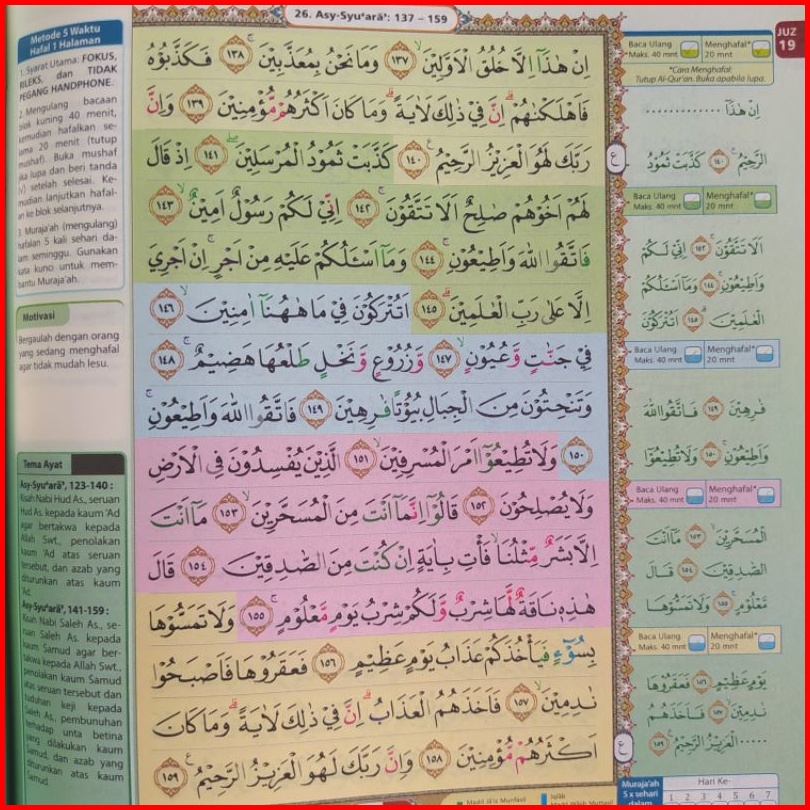 26. Asy-Syu'arā': 137 – 159
JUZ
19
Metode 5 Waktu
Hafal 1 Halaman
1. Syarat Utama: FOKUS,
RILEKS, dan TIDAK
PEGANG HANDPHONE.
2. Mengulang bacaan
blok kuning 40 menit,
kemudian hafalkan se-
lama 20 menit (tutup
mushaf). Buka mushaf
jika lupa dan beri tanda
(√) setelah selesai. Ke-
mudian lanjutkan hafal-
an ke blok selanjutnya.
3. Muraja'ah (mengulang)
hafalan 5 kali sehari da-
lam seminggu. Gunakan
kata kuno untuk mem-
bantu Muraja'ah.
Motivasi
Bergaulah dengan orang
yang sedang menghafal
agar tidak mudah lesu.
Tema Ayat
Asy-Syu'arā', 123-140 :
Kisah Nabi Hud As., seruan
Hud As. kepada kaum 'Ad
agar bertakwa kepada
Allah Swt., penolakan
kaum 'Ad atas seruan
tersebut, dan azab yang
diturunkan atas kaum
'Ad.
Asy-Syu'arā', 141-159 :
Kisah Nabi Saleh As., se-
ruan Saleh As. kepada
kaum Samud agar ber-
takwa kepada Allah Swt.,
penolakan kaum Samud
atas seruan tersebut dan
tuduhan keji kepada
Saleh As., pembunuhan
terhadap unta betina
yang dilakukan kaum
Samud, dan azab yang
diturunkan atas kaum
Samud.
اِنْ هٰذَآ اِلَّا خُلُقُ الْاَوَّلِيْنَ ۙ ١٣٧ وَمَا نَحْنُ بِمُعَذَّبِيْنَ ۚ ١٣٨ فَكَذَّبُوْهُ
فَاَهْلَكْنٰهُمْ ۗاِنَّ فِيْ ذٰلِكَ لَاٰيَةً ۗوَمَا كَانَ اَكْثَرُهُمْ مُّؤْمِنِيْنَ ١٣٩ وَاِنَّ
رَبَّكَ لَهُوَ الْعَزِيْزُ الرَّحِيْمُ ࣖ ١٤٠ كَذَّبَتْ ثَمُوْدُ الْمُرْسَلِيْنَ ۖ ١٤١ اِذْ قَالَ
لَهُمْ اَخُوْهُمْ صٰلِحٌ اَلَا تَتَّقُوْنَ ۚ ١٤٢ اِنِّيْ لَكُمْ رَسُوْلٌ اَمِيْنٌ ۙ ١٤٣
فَاتَّقُوا اللّٰهَ وَاَطِيْعُوْنِ ۚ ١٤٤ وَمَآ اَسْـَٔلُكُمْ عَلَيْهِ مِنْ اَجْرٍۚ اِنْ اَجْرِيَ
اِلَّا عَلٰى رَبِّ الْعٰلَمِيْنَ ۗ ١٤٥ اَتُتْرَكُوْنَ فِيْ مَا هٰهُنَآ اٰمِنِيْنَ ۙ ١٤٦
فِيْ جَنّٰتٍ وَّعُيُوْنٍ ۙ ١٤٧ وَّزُرُوْعٍ وَّنَخْلٍ طَلْعُهَا هَضِيْمٌ ۚ ١٤٨
وَتَنْحِتُوْنَ مِنَ الْجِبَالِ بُيُوْتًا فٰرِهِيْنَ ۚ ١٤٩ فَاتَّقُوا اللّٰهَ وَاَطِيْعُوْنِ ۚ
١٥٠ وَلَا تُطِيْعُوْٓا اَمْرَ الْمُسْرِفِيْنَ ۙ ١٥١ الَّذِيْنَ يُفْسِدُوْنَ فِى الْاَرْضِ
وَلَا يُصْلِحُوْنَ ١٥٢ قَالُوْٓا اِنَّمَآ اَنْتَ مِنَ الْمُسَحَّرِيْنَ ۙ ١٥٣ مَآ اَنْتَ
اِلَّا بَشَرٌ مِّثْلُنَاۙ فَأْتِ بِاٰيَةٍ اِنْ كُنْتَ مِنَ الصّٰدِقِيْنَ ١٥٤ قَالَ
هٰذِهٖ نَاقَةٌ لَّهَا شِرْبٌ وَّلَكُمْ شِرْبُ يَوْمٍ مَّعْلُوْمٍ ۚ ١٥٥ وَلَا تَمَسُّوْهَا
بِسُوْۤءٍ فَيَأْخُذَكُمْ عَذَابُ يَوْمٍ عَظِيْمٍ ١٥٦ فَعَقَرُوْهَا فَاَصْبَحُوْا
نٰدِمِيْنَ ۙ ١٥٧ فَاَخَذَهُمُ الْعَذَابُ ۗاِنَّ فِيْ ذٰلِكَ لَاٰيَةً ۗوَمَا كَانَ
اَكْثَرُهُمْ مُّؤْمِنِيْنَ ١٥٨ وَاِنَّ رَبَّكَ لَهُوَ الْعَزِيْزُ الرَّحِيْمُ ࣖ ١٥٩
ع
ع
Baca Ulang Menghafal*
Maks. 40 mnt 20 mnt
*Cara Menghafal:
Tutup Al-Qur'an. Buka apabila lupa.
اِنْ هٰذَآ ..............
الرَّحِيْمُ ١٤٠ كَذَّبَتْ ثَمُوْدُ
Baca Ulang Menghafal*
Maks. 40 mnt 20 mnt
اَلَا تَتَّقُوْنَ ١٤٢ اِنِّيْ لَكُمْ
وَاَطِيْعُوْنِ ١٤٤ وَمَآ اَسْـَٔلُكُمْ
الْعٰلَمِيْنَ ١٤٥ اَتُتْرَكُوْنَ
Baca Ulang Menghafal*
Maks. 40 mnt 20 mnt
فٰرِهِيْنَ ١٤٩ فَاتَّقُوا اللّٰهَ
وَاَطِيْعُوْنِ ١٥٠ وَلَا تُطِيْعُوْٓا
Baca Ulang Menghafal*
Maks. 40 mnt 20 mnt
الْمُسَحَّرِيْنَ ١٥٣ مَآ اَنْتَ
الصّٰدِقِيْنَ ١٥٤ قَالَ
مَّعْلُوْمٍ ١٥٥ وَلَا تَمَسُّوْهَا
Baca Ulang Menghafal*
Maks. 40 mnt 20 mnt
يَوْمٍ عَظِيْمٍ ١٥٦ فَعَقَرُوْهَا
نٰدِمِيْنَ ١٥٧ فَاَخَذَهُمُ
..... الْعَزِيْزُ الرَّحِيْمُ ١٥٩
Muraja'ah
5 x sehari
dalam
Hari Ke-
1 2 3 4 5 6 7
Mad Jā'iz Munfasil